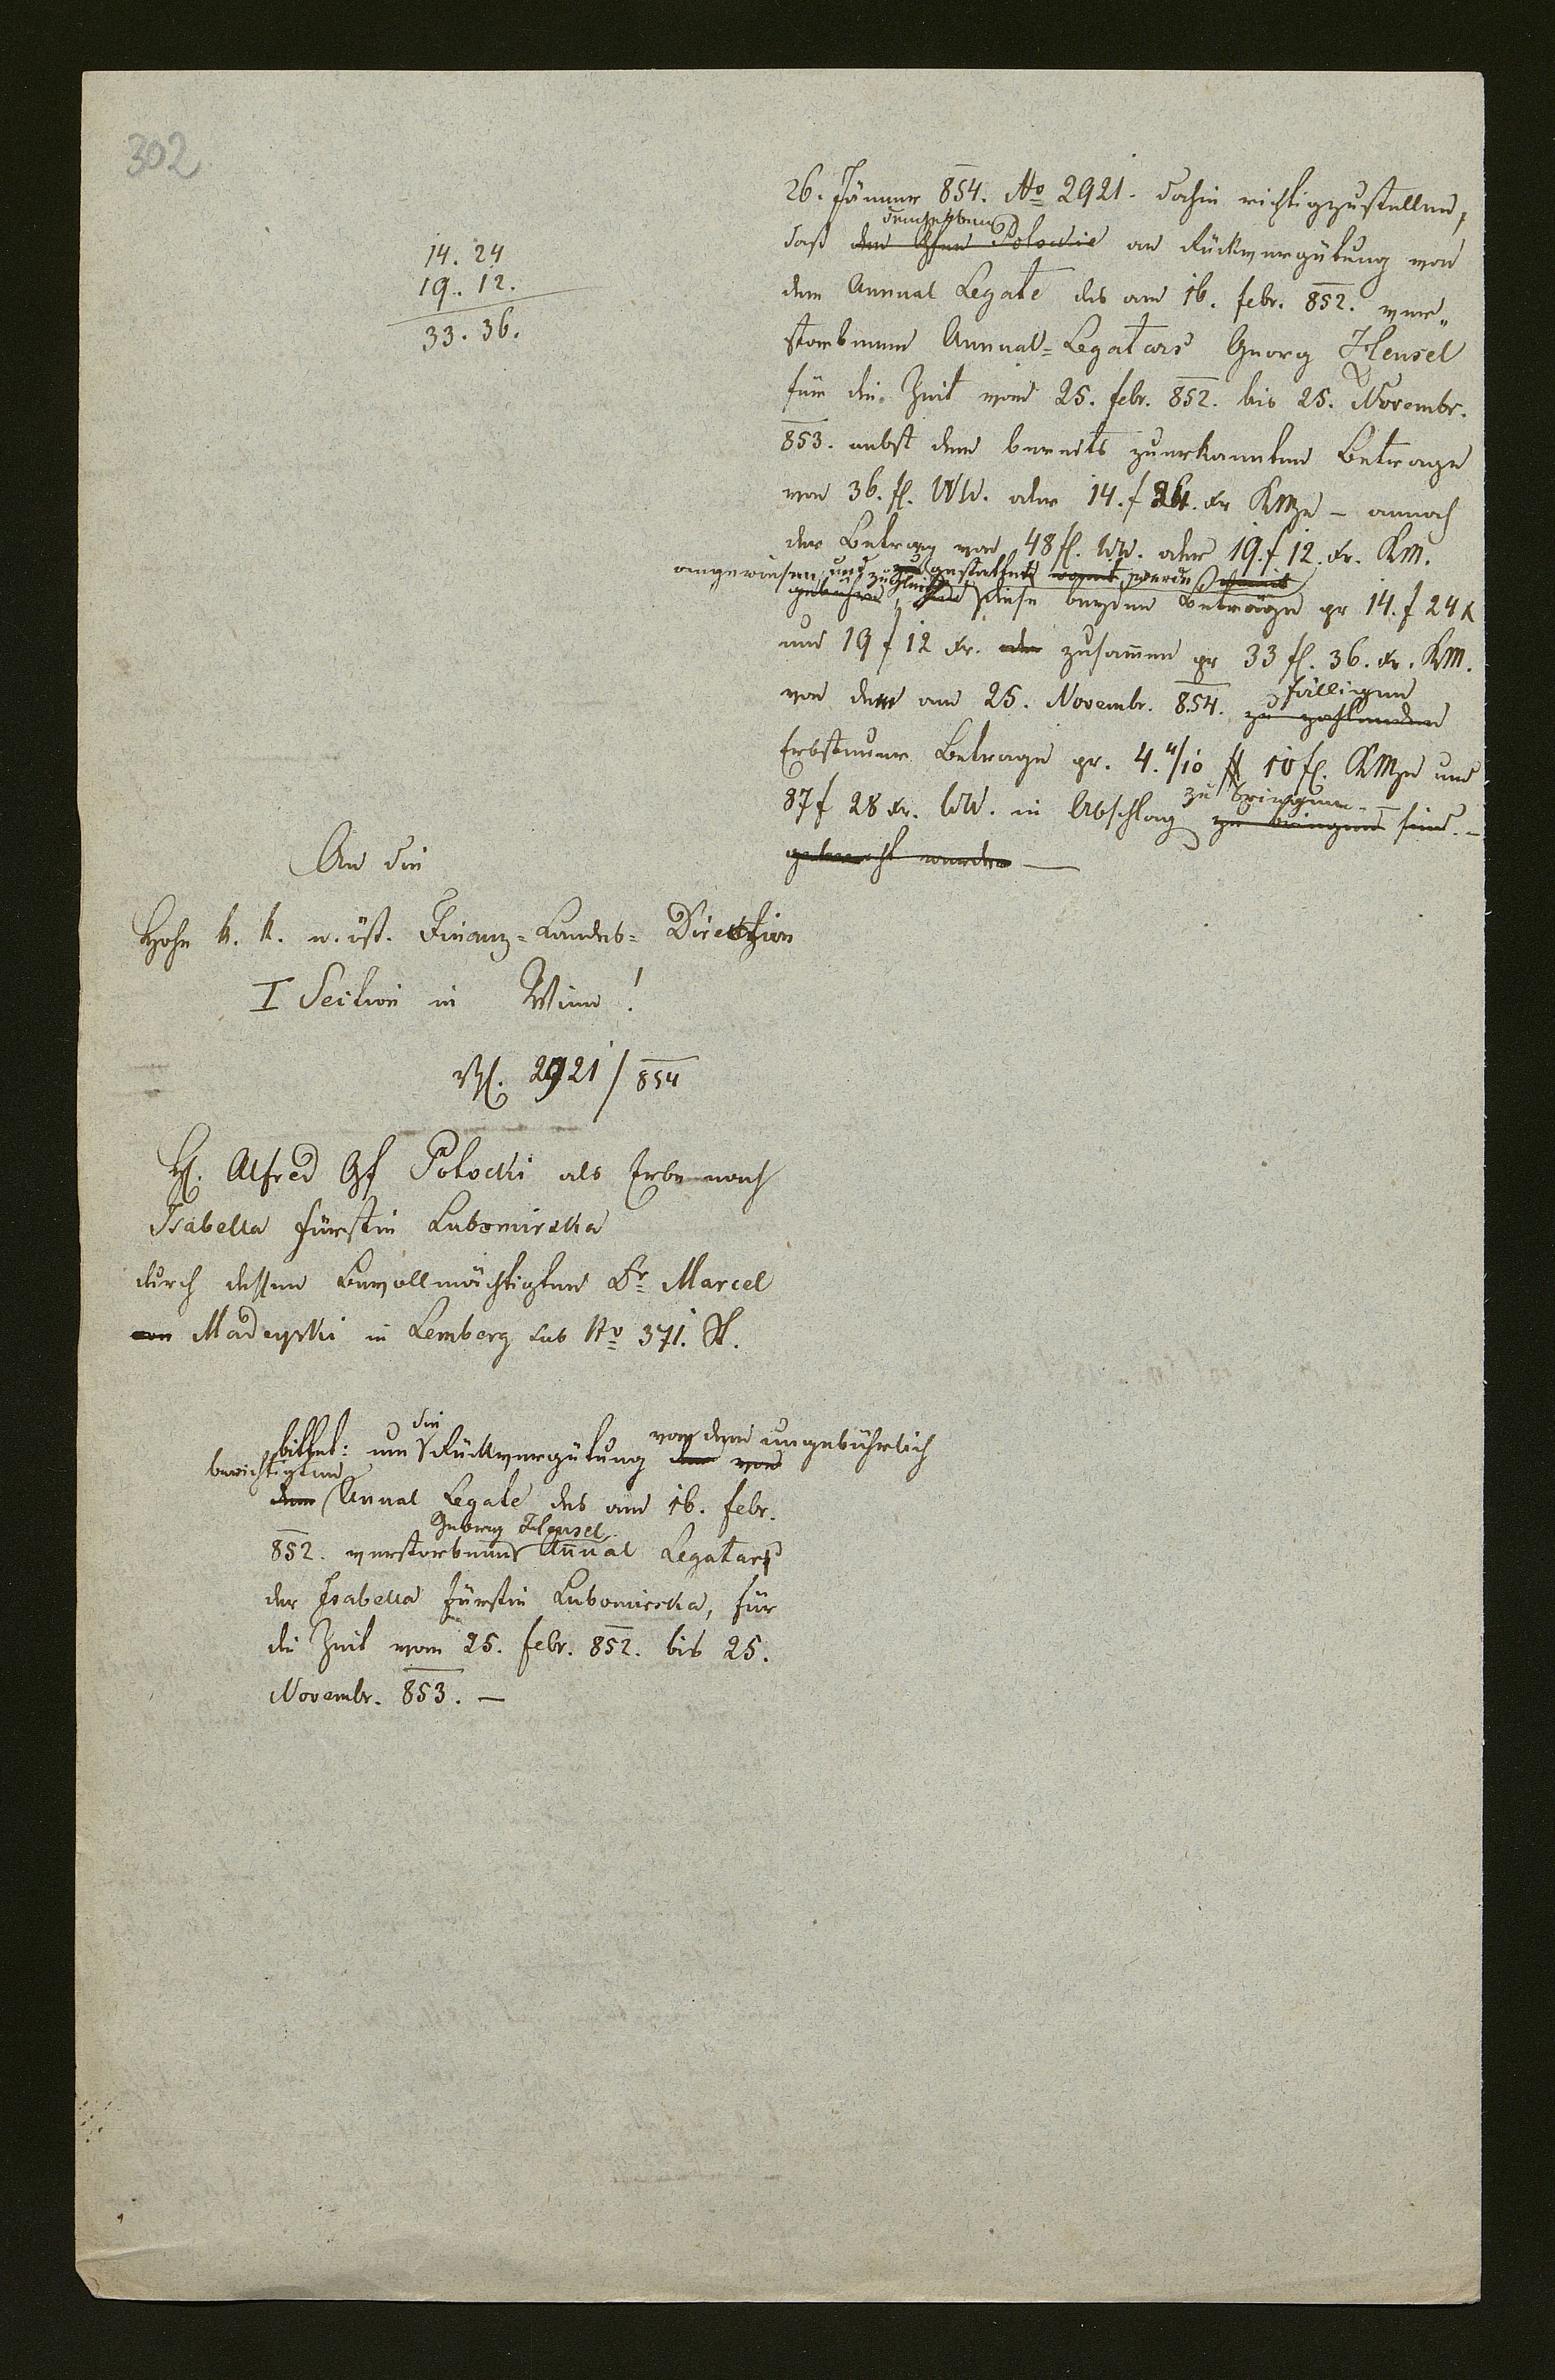 302
14. 24
19. 12.
33. 36.
26. Jänner 854. No 2921. dahin richtigzustellen,
demselben
daß dem Gfen Potocki an Rückvergütung von
dem Annual Legate des am 16. febr. 852. ver„
storbenen Annual-Legatars Georg Hensel
für die Zeit vom 25. febr. 852. bis 25. Novembr.
853. nebst dem bereits zuerkannten Betrage
von 36. fl. WW. oder 14. f 24. xr KMze – annoch
der Betrag von 48 fl. WW. oder 19. f 12. xr. KM.
angewiesen, und zugleich gestattet werde
gebühre, diese beyden Beträge pr 14. f 24 x
und 19 f 12 xr. oder zusammen pr 33 fl. 36. xr. KM.
fälligen
von dem am 25. Novembr. 854. zu zahlenden
Erbsteuer Betrage pr. 4. 4/10 10 fl. KMze und
zu bringen. –
87 f 28 xr. WW. in Abschlag zu bringen sind. –
gebracht werden –
An die
Hohe k. k. n. öst. Finanz-Landes-Direction
I Section in Wien!
2921/854
H. Alfred Gf Potocki als Erbe nach
Isabella Fürstin Lubomirska
durch dessen Bevollmächtigten Dr Marcel
von Madeyski in Lemberg sub No 371. St.
die von dem ungebührlich
bittet: um Rückvergütung der von
berichtigten
dem Annual Legate des am 16. febr.
Georg Hensel
852. verstorbenen Annual Legatars
der Isabella Fürstin Lubomirska, für
die Zeit vom 25. febr. 852. bis 25.
Novembr. 853. –